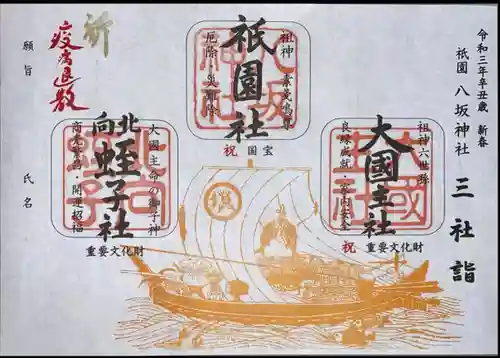 令和三年辛丑歳 新春
祇園 八坂神社 三社詣
祖神六世孫
大國主社
良縁成就・家内安全
祝 重要文化財
祖神 素戔嗚尊
祇園社
厄除・災難除
祝 国宝
大國主命の御子神
北向 蛭子社
商売繁昌・開運招福
重要文化財
祈
疫病退散
願旨
氏名